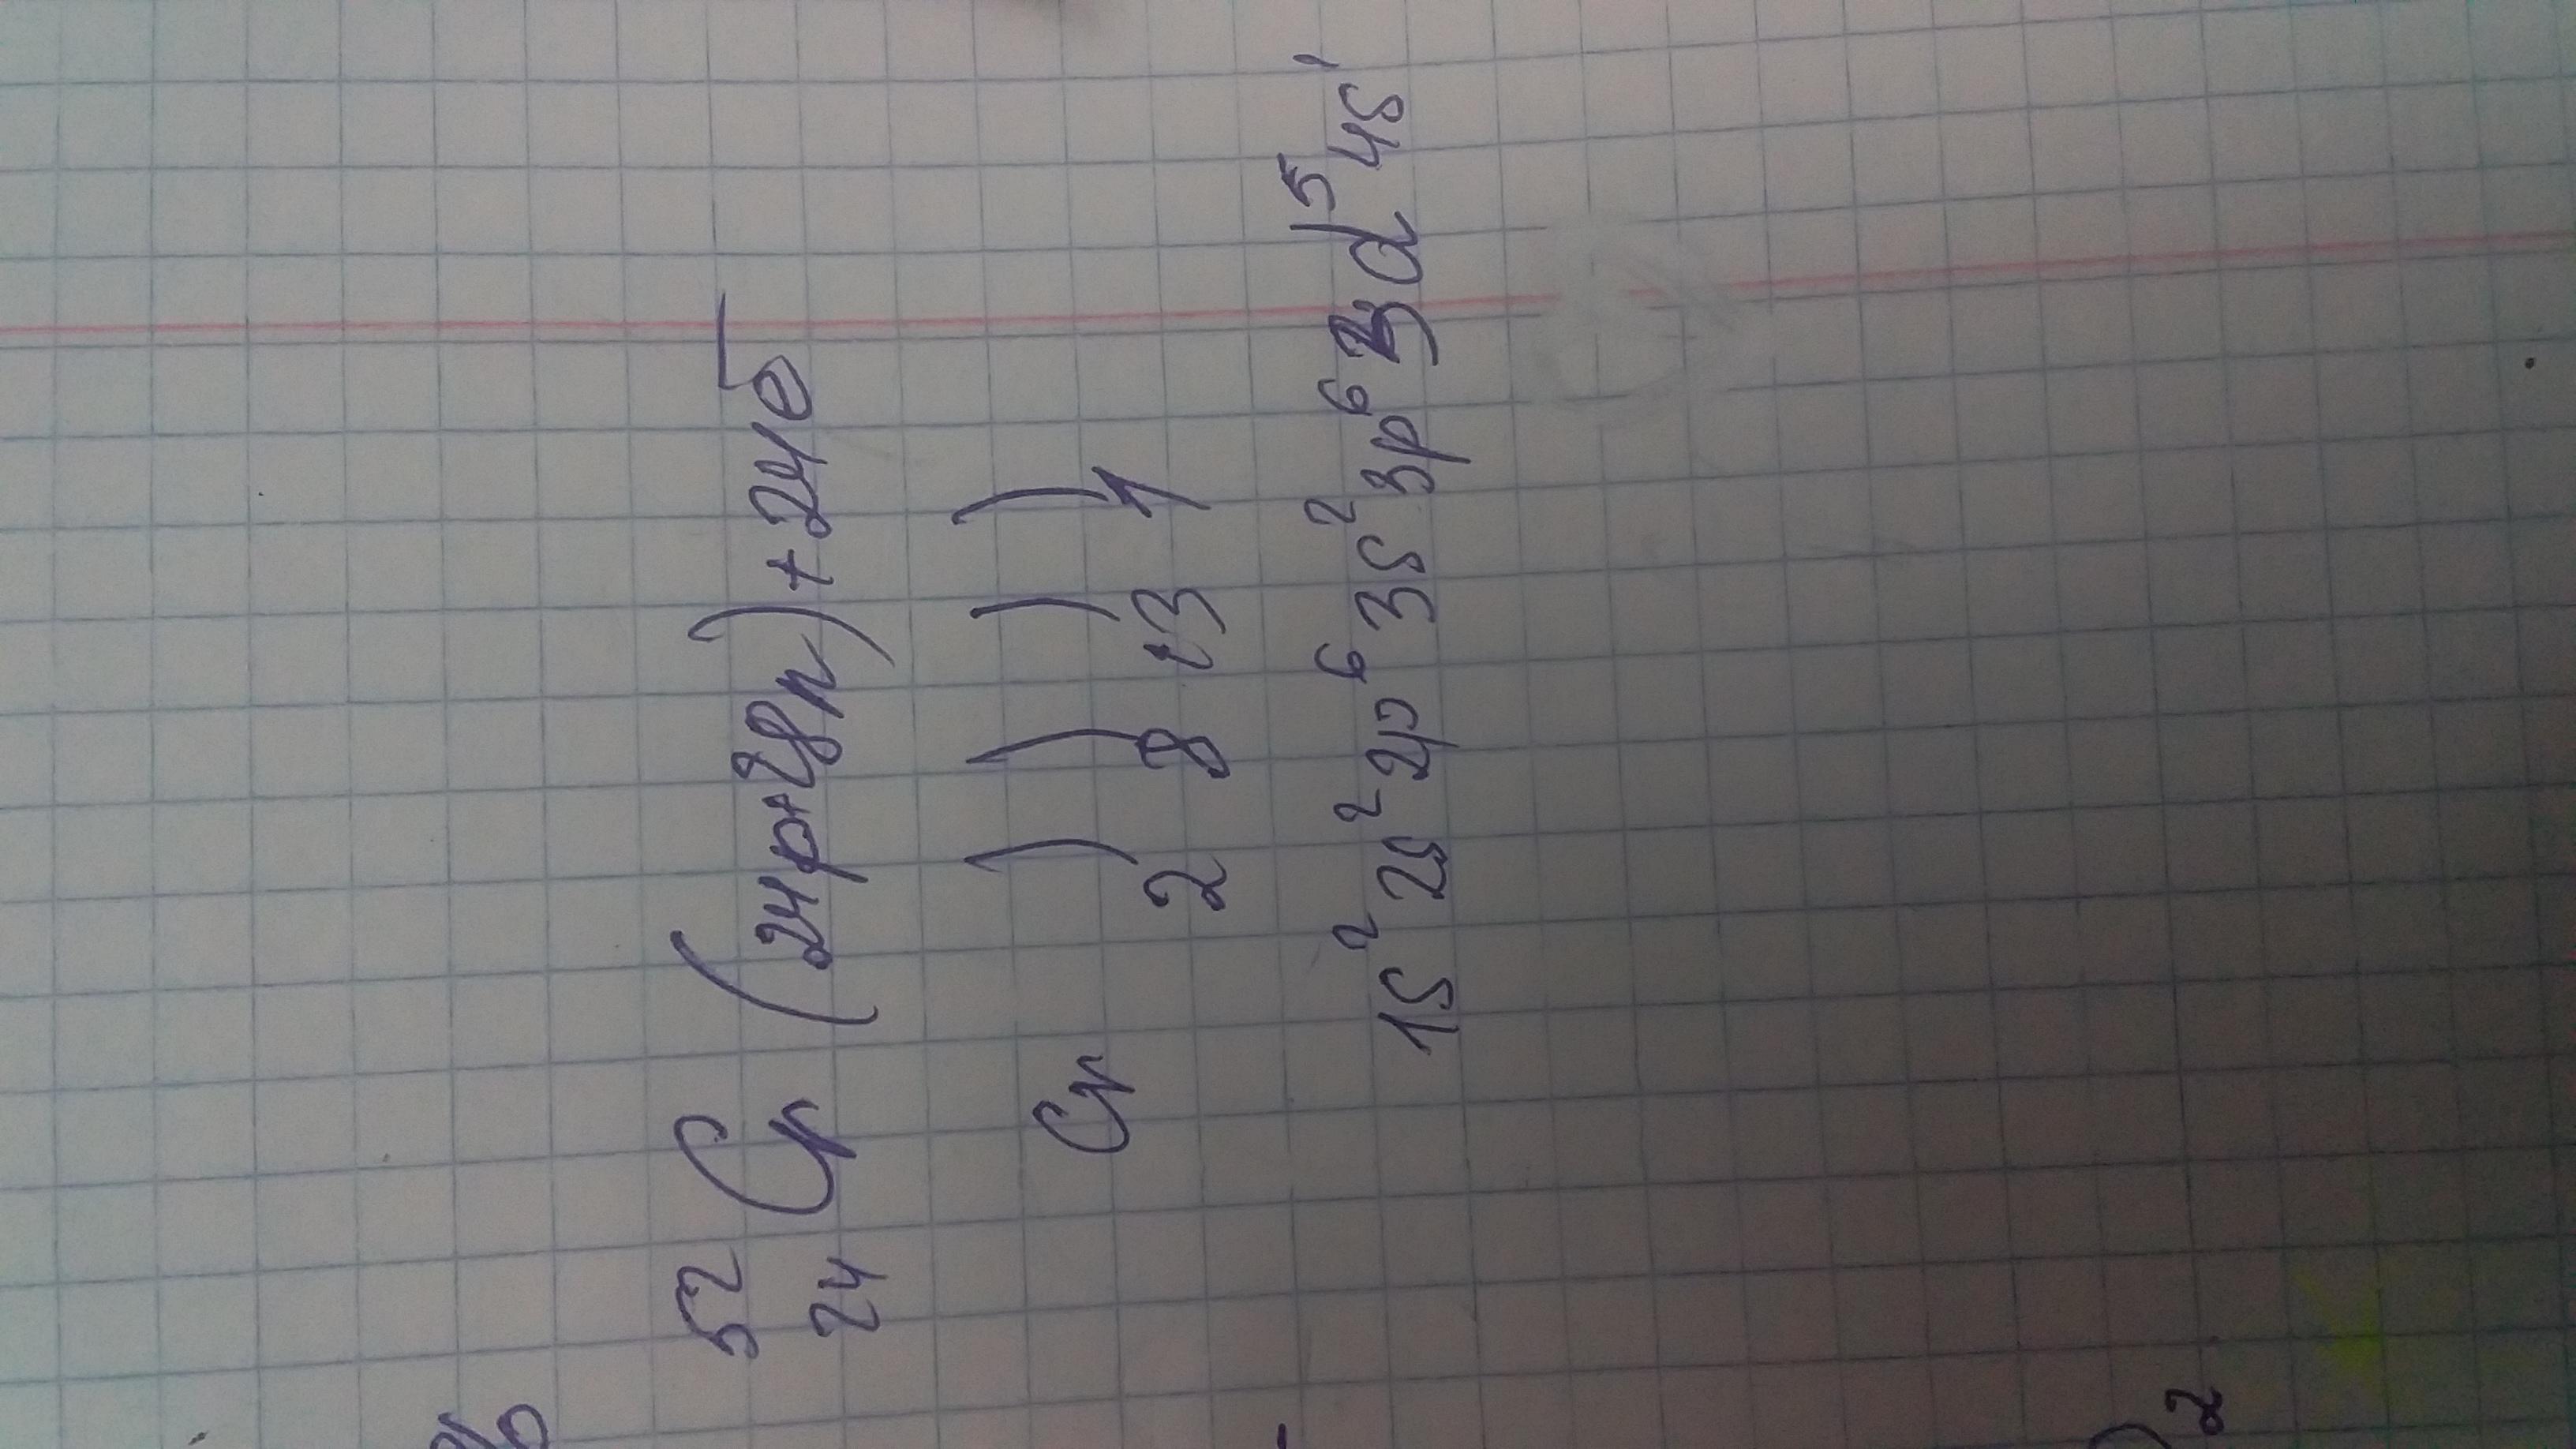 ⁵²₂₄Cr (24p+28n)+24e̅
Cr ) ) ) )
2 8 13 1
1s² 2s² 2p⁶ 3s² 3p⁶ 3d⁵ 4s¹
%
)²